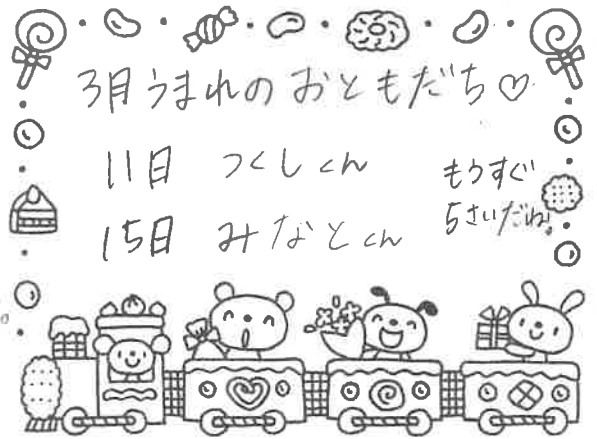 3月うまれのおともだち♡
11日 つくしくん
15日 みなとくん
もうすぐ
5さいだね。